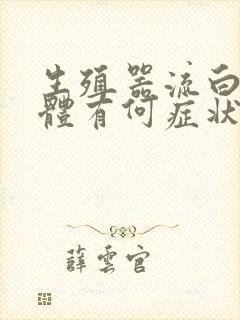 生殖器流白
體有何症狀
薛雲官